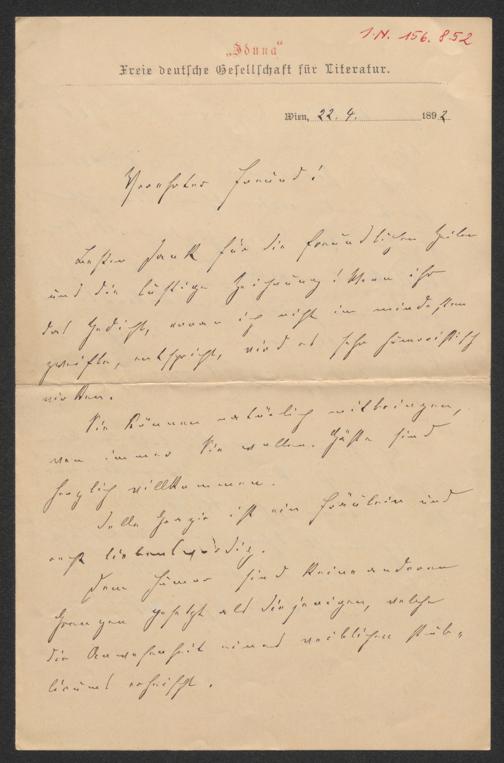 I.N. 156.852
„Iduna“
Freie deutsche Gesellschaft für Literatur.
Wien, 22. 4. 1892
Verehrter Freund!
Besten Dank für die freundlichen Zeilen
und die lustige Zeichnung! Wenn ihr
das Gedicht, woran ich nicht im mindesten
zweifle, entspricht, wird es sehr humoristisch
wirken.
Sie können natürlich mitbringen,
wen immer Sie wollen. Gäste sind
herzlich willkommen.
Delle Grazie ist ein Fräulein und
recht liebenswürdig.
Dem Humor sind keine anderen
Grenzen gesetzt als diejenigen, welche
die Anwesenheit eines weiblichen Pub-
licums erheischt.